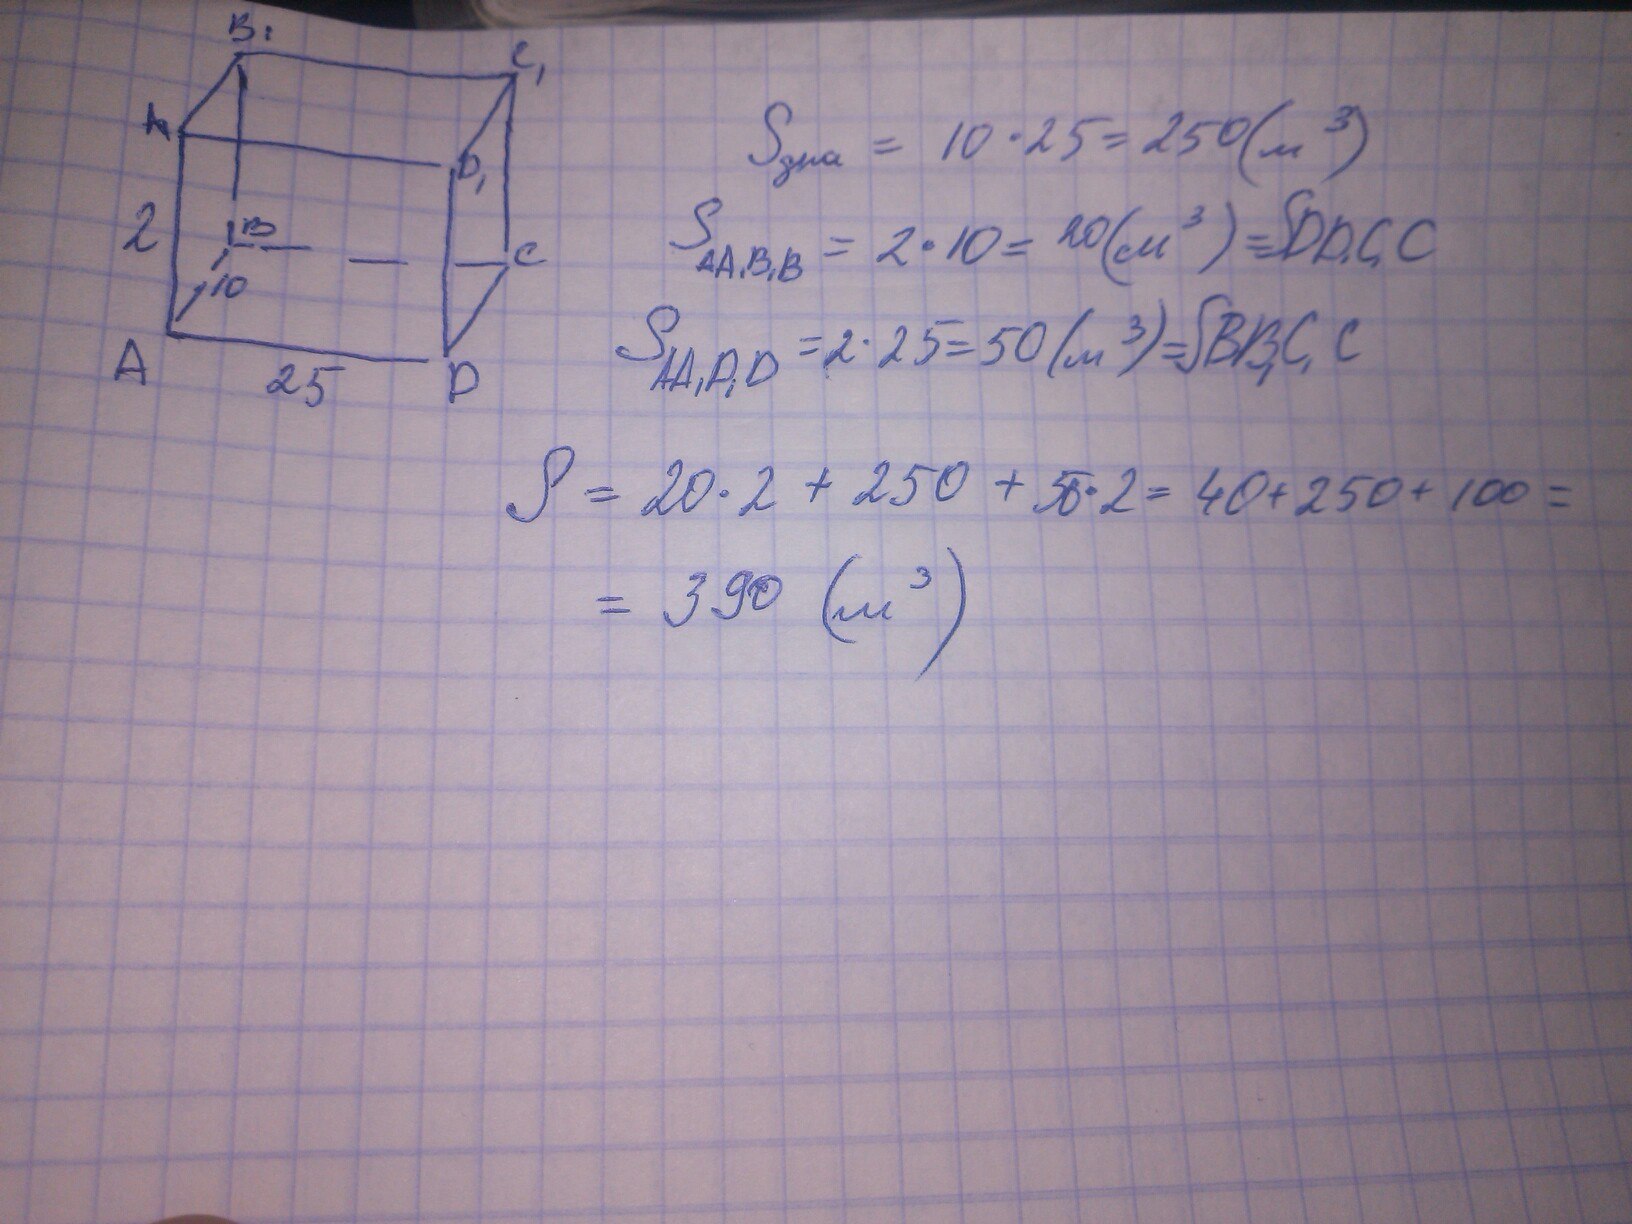 B₁
C₁
A₁
D₁
2
B
C
10
A
25
D
Sдна = 10·25 = 250(м³)
SAA₁B₁B = 2·10 = 20(м³) = SDD₁C₁C
SAA₁D₁D = 2·25 = 50(м³) = SBB₁C₁C
S = 20·2 + 250 + 50·2 = 40 + 250 + 100 =
= 390 (м³)